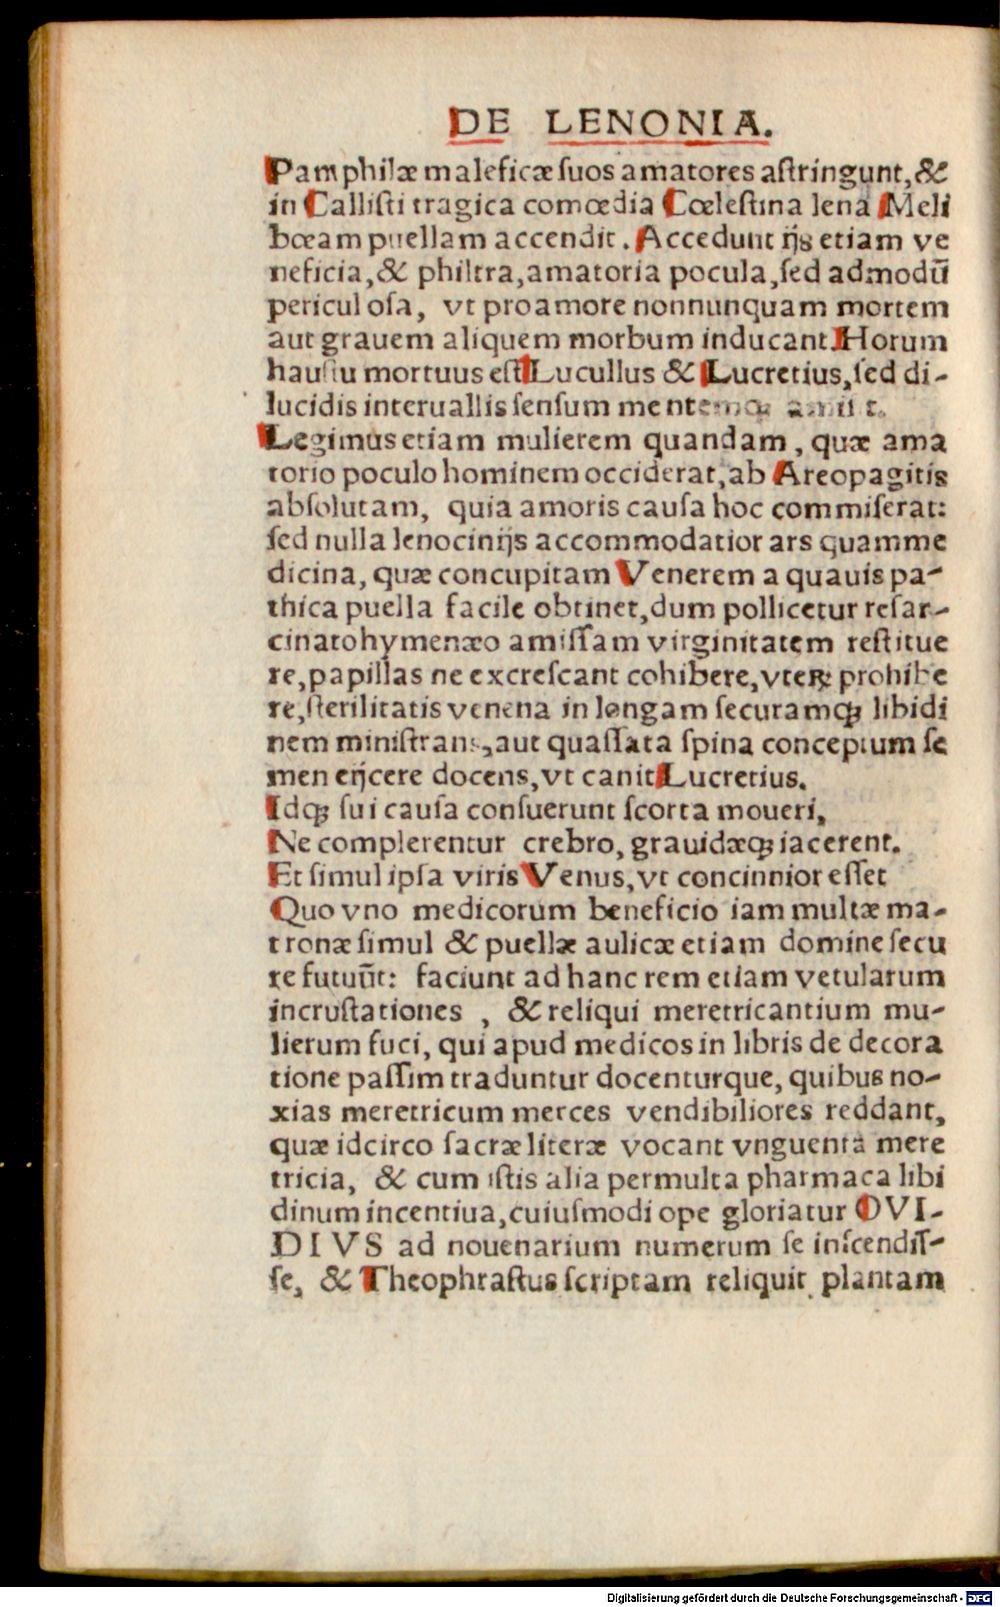 DE LENONIA.
Pamphilæ maleficæ ſuos amatores aſtringunt, &
in Calliſti tragica comœdia Cœleſtina lena Meli
bœam puellam accendit. Accedunt ijs etiam ve
neficia, & philtra, amatoria pocula, ſed admodū
periculoſa, vt pro amore nonnunquam mortem
aut grauem aliquem morbum inducant. Horum
hauſtu mortuus eſt Lucullus & Lucretius, ſed di-
lucidis interuallis ſenſum mentemq;
Legimus etiam mulierem quandam, quæ ama
torio poculo hominem occiderat, ab Areopagitis
abſolutam, quia amoris cauſa hoc commiſerat:
ſed nulla lenocinijs accommodatior ars quam me
dicina, quæ concupitam Venerem a quauis pa-
thica puella facile obtinet, dum pollicetur reſar-
cinato hymenæo amiſſam virginitatem reſtitue
re, papillas ne excreſcant cohibere, vterꝝ prohibe
re, ſterilitatis venena in longam ſecuramq; libidi
nem miniſtrans, aut quaſſata ſpina conceptum ſe
men eijcere docens, vt canit Lucretius.
Idq; ſui cauſa conſuerunt ſcorta moueri,
Ne complerentur crebro, grauidæq; iacerent.
Et ſimul ipſa viris Venus, vt concinnior eſſet
Quo vno medicorum beneficio iam multæ ma-
tronæ ſimul & puellæ aulicæ etiam domine ſecu
re futuūt: faciunt ad hanc rem etiam vetularum
incruſtationes , & reliqui meretricantium mu-
lierum fuci, qui apud medicos in libris de decora
tione paſſim traduntur docenturque, quibus no-
xias meretricum merces vendibiliores reddant,
quæ idcirco ſacræ literæ vocant vnguenta mere
tricia, & cum iſtis alia permulta pharmaca libi
dinum incentiua, cuiuſmodi ope gloriatur OVI-
DIVS ad nouenarium numerum ſe inſcendiſ-
ſe, & Theophraſtus ſcriptam reliquit plantam
Digitalisierung gefördert durch die Deutsche Forschungsgemeinschaft - DFG